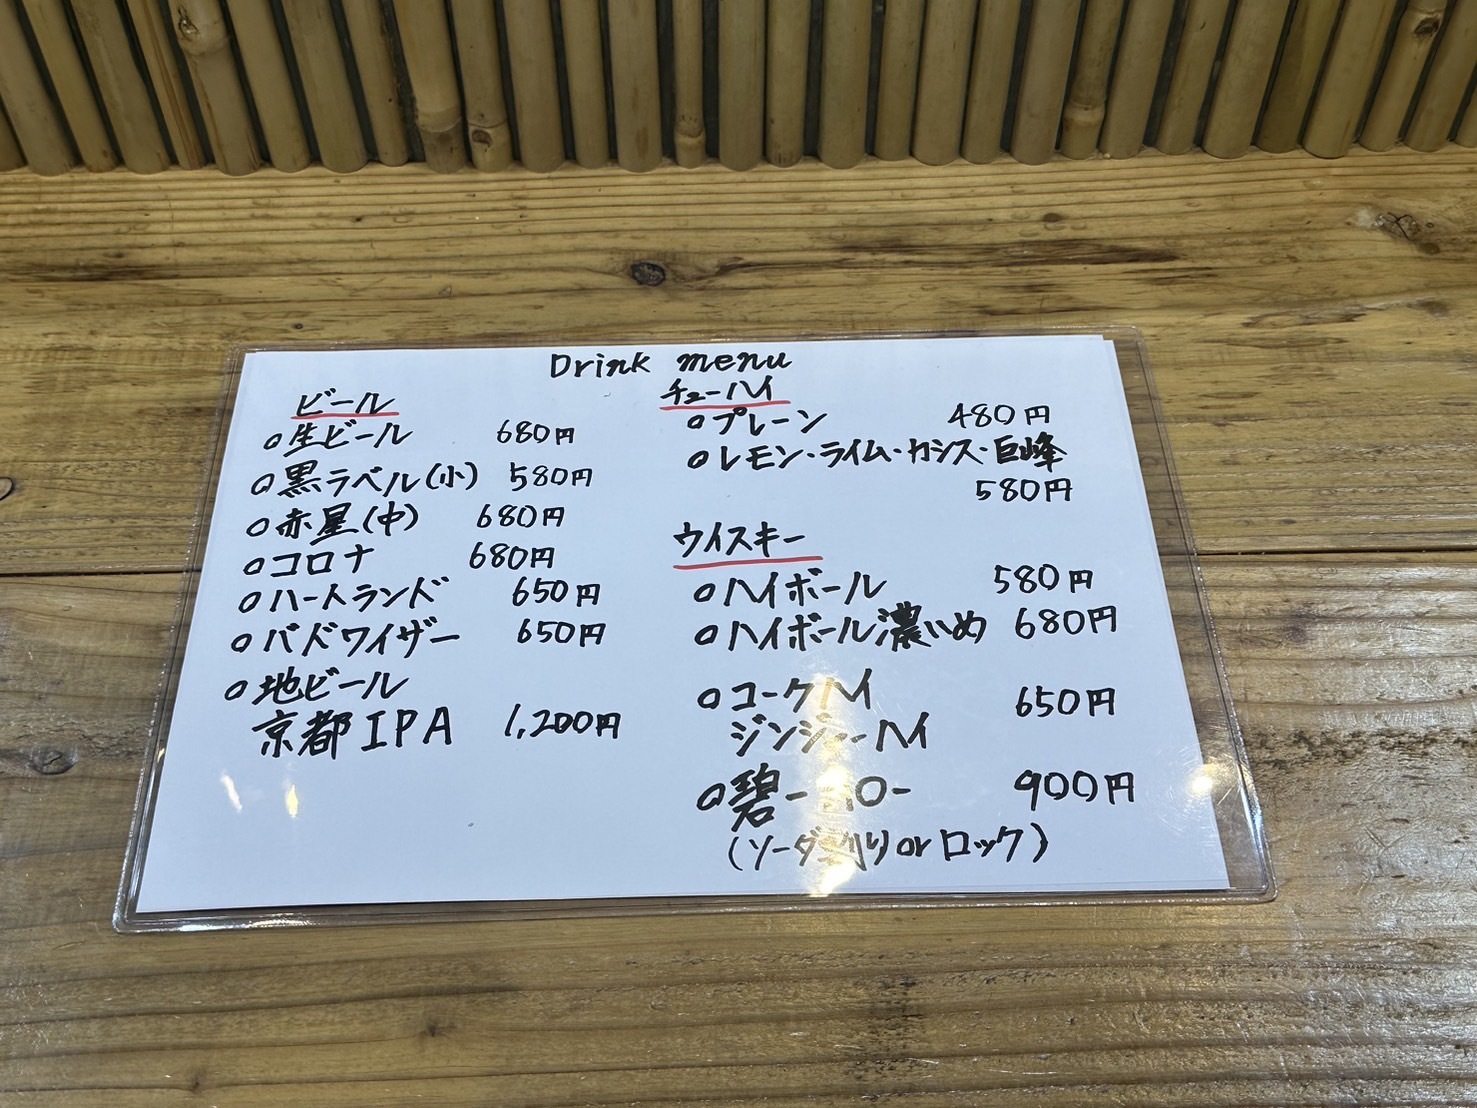 Drink menu
ビール
○生ビール 680円
○黒ラベル(小) 580円
○赤星(中) 680円
○コロナ 680円
○ハートランド 650円
○バドワイザー 650円
○地ビール
京都IPA 1,200円
チューハイ
○プレーン 480円
○レモン・ライム・カシス・巨峰
580円
ウイスキー
○ハイボール 580円
○ハイボール濃いめ 680円
○コークハイ 650円
ジンジャーハイ
○碧-アオ- 900円
(ソーダ割り or ロック)